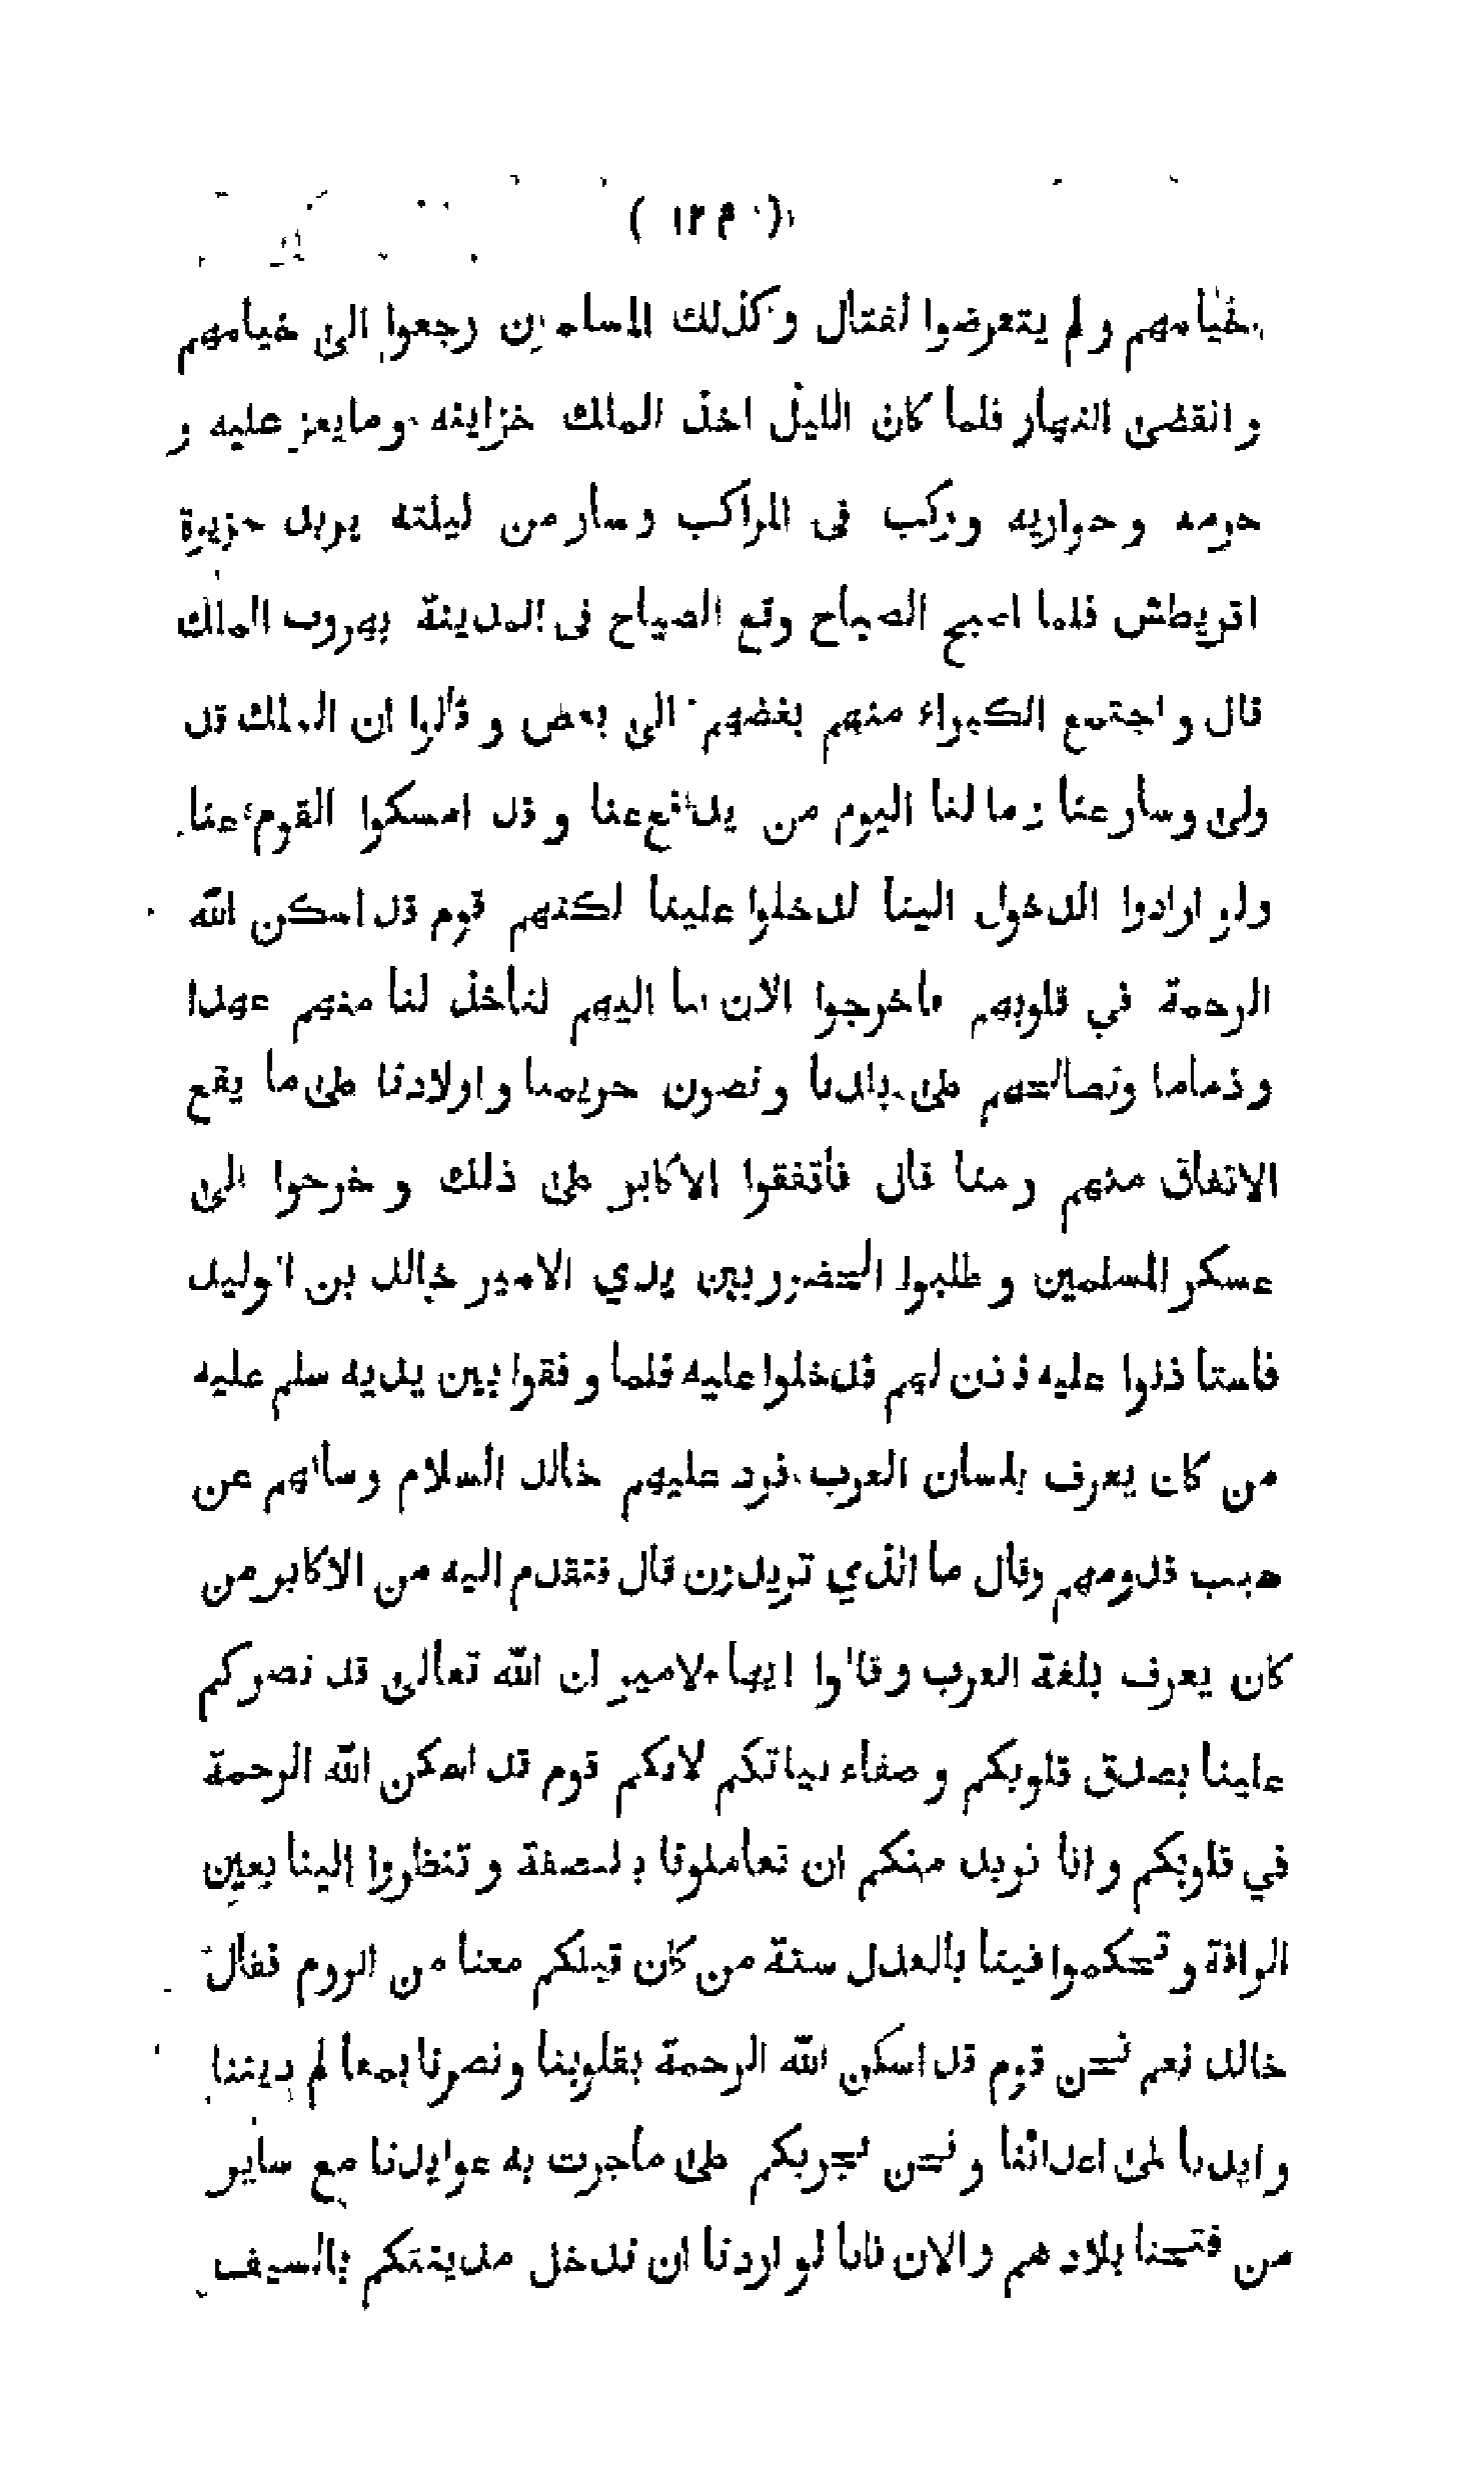 ( ١٢٩ )
بخيامهم و لم يتعرضوا لقتال و كذلك المسلمين رجعوا الى خيامهم
و انقضى النهار فلما كان الليل اخذ الملك خزاينه وما يعز عليه و
حرمه و جواريه وركب فى المراكب و سار من ليلته يريد جزيرة
اقريطش فلما اصبح الصباح وقع الصياح فى المدينة بهروب الملك
قال و اجتمع الكبراء منهم بعضهم الى بعض و قالوا ان الملك قد
ولى و سار عنا و ما لنا اليوم من يدافع عنا و قد امسكوا القوم عنا
ولو ارادوا الدخول الينا لدخلوا علينا لكنهم قوم قد اسكن الله
الرحمة في قلوبهم فاخرجوا الان بنا اليهم لنأخذ لنا منهم عهدا
و ذماما ونصالحهم على بلدنا و نصون حريمنا و اولادنا على ما يقع
الاتفاق منهم و منا قال فاتفقوا الاكابر على ذلك و خرجوا الى
عسكر المسلمين و طلبوا الحضور بين يدي الامير خالد بن الوليد
فاستا ذنوا عليه فاذن لهم فدخلوا عليه فلما وقفوا بين يديه سلم عليه
من كان يعرف بلسان العرب فرد عليهم خالد السلام وسالهم عن
سبب قدومهم وقال ما الذي تريدون قال فتقدم اليه من الاكابر من
كان يعرف بلغة العرب و قالوا ايها الامير ان الله تعالى قد نصركم
علينا بصدق قلوبكم و صفاء نياتكم لانكم قوم قد اسكن الله الرحمة
في قلوبكم و انا نريد منكم ان تعاملونا بالنصفة و تنظروا الينا بعين
الرافة و تحكموا فينا بالعدل سنة من كان قبلكم معنا من الروم فقال
خالد نعم نحن قوم قد اسكن الله الرحمة بقلوبنا و نصرنا بمعالم ديننا
و ايدنا على اعدائنا و نحن نجريكم على ماجرت به عوايدنا مع ساير
من فتحنا بلادهم و الان فانا لو اردنا ان ندخل مدينتكم بالسيف